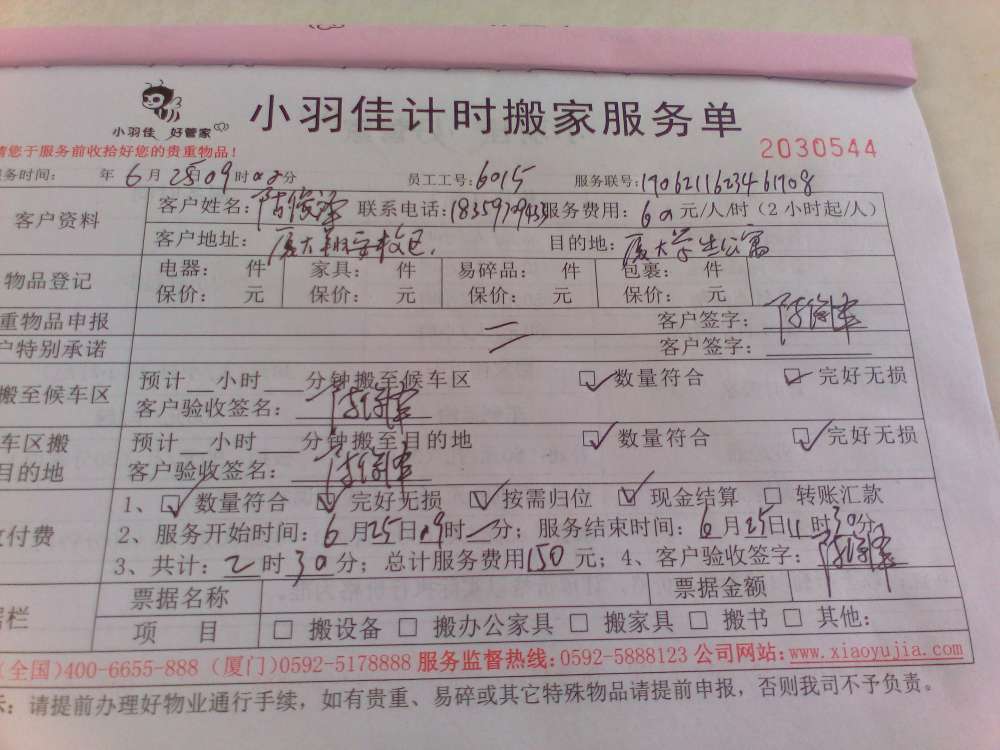 小羽佳 好管家
小羽佳计时搬家服务单
请您于服务前收拾好您的贵重物品！
2030544
务时间： 年 6 月 25 日 09 时 00 分 员工工号：6015 服务联号：1706211623461708
客户资料 客户姓名： 联系电话： 服务费用：60 元/人/时（2小时起/人）
客户地址：厦大翔安校区 目的地：厦大学生公寓
物品登记 电器： 件 家具： 件 易碎品： 件 包裹： 件
保价： 元 保价： 元 保价： 元 保价： 元
重物品申报 客户签字：
户特别承诺 客户签字：
搬至候车区 预计__小时___分钟搬至候车区 数量符合 完好无损
客户验收签名：
车区搬 预计__小时___分钟搬至目的地 数量符合 完好无损
目的地 客户验收签名：
1、 数量符合 完好无损 按需归位 现金结算 转账汇款
付费 2、服务开始时间：6月25日09时 分；服务结束时间：6月25日11时30分
3、共计：2时30分；总计服务费用150元；4、客户验收签字：
票据名称 票据金额
栏 项 目 搬设备 搬办公家具 搬家具 搬书 其他：
(全国)400-6655-888 (厦门)0592-5178888 服务监督热线:0592-5888123 公司网站:www.xiaoyujia.com
：请提前办理好物业通行手续，如有贵重、易碎或其它特殊物品请提前申报，否则我司不予负责。